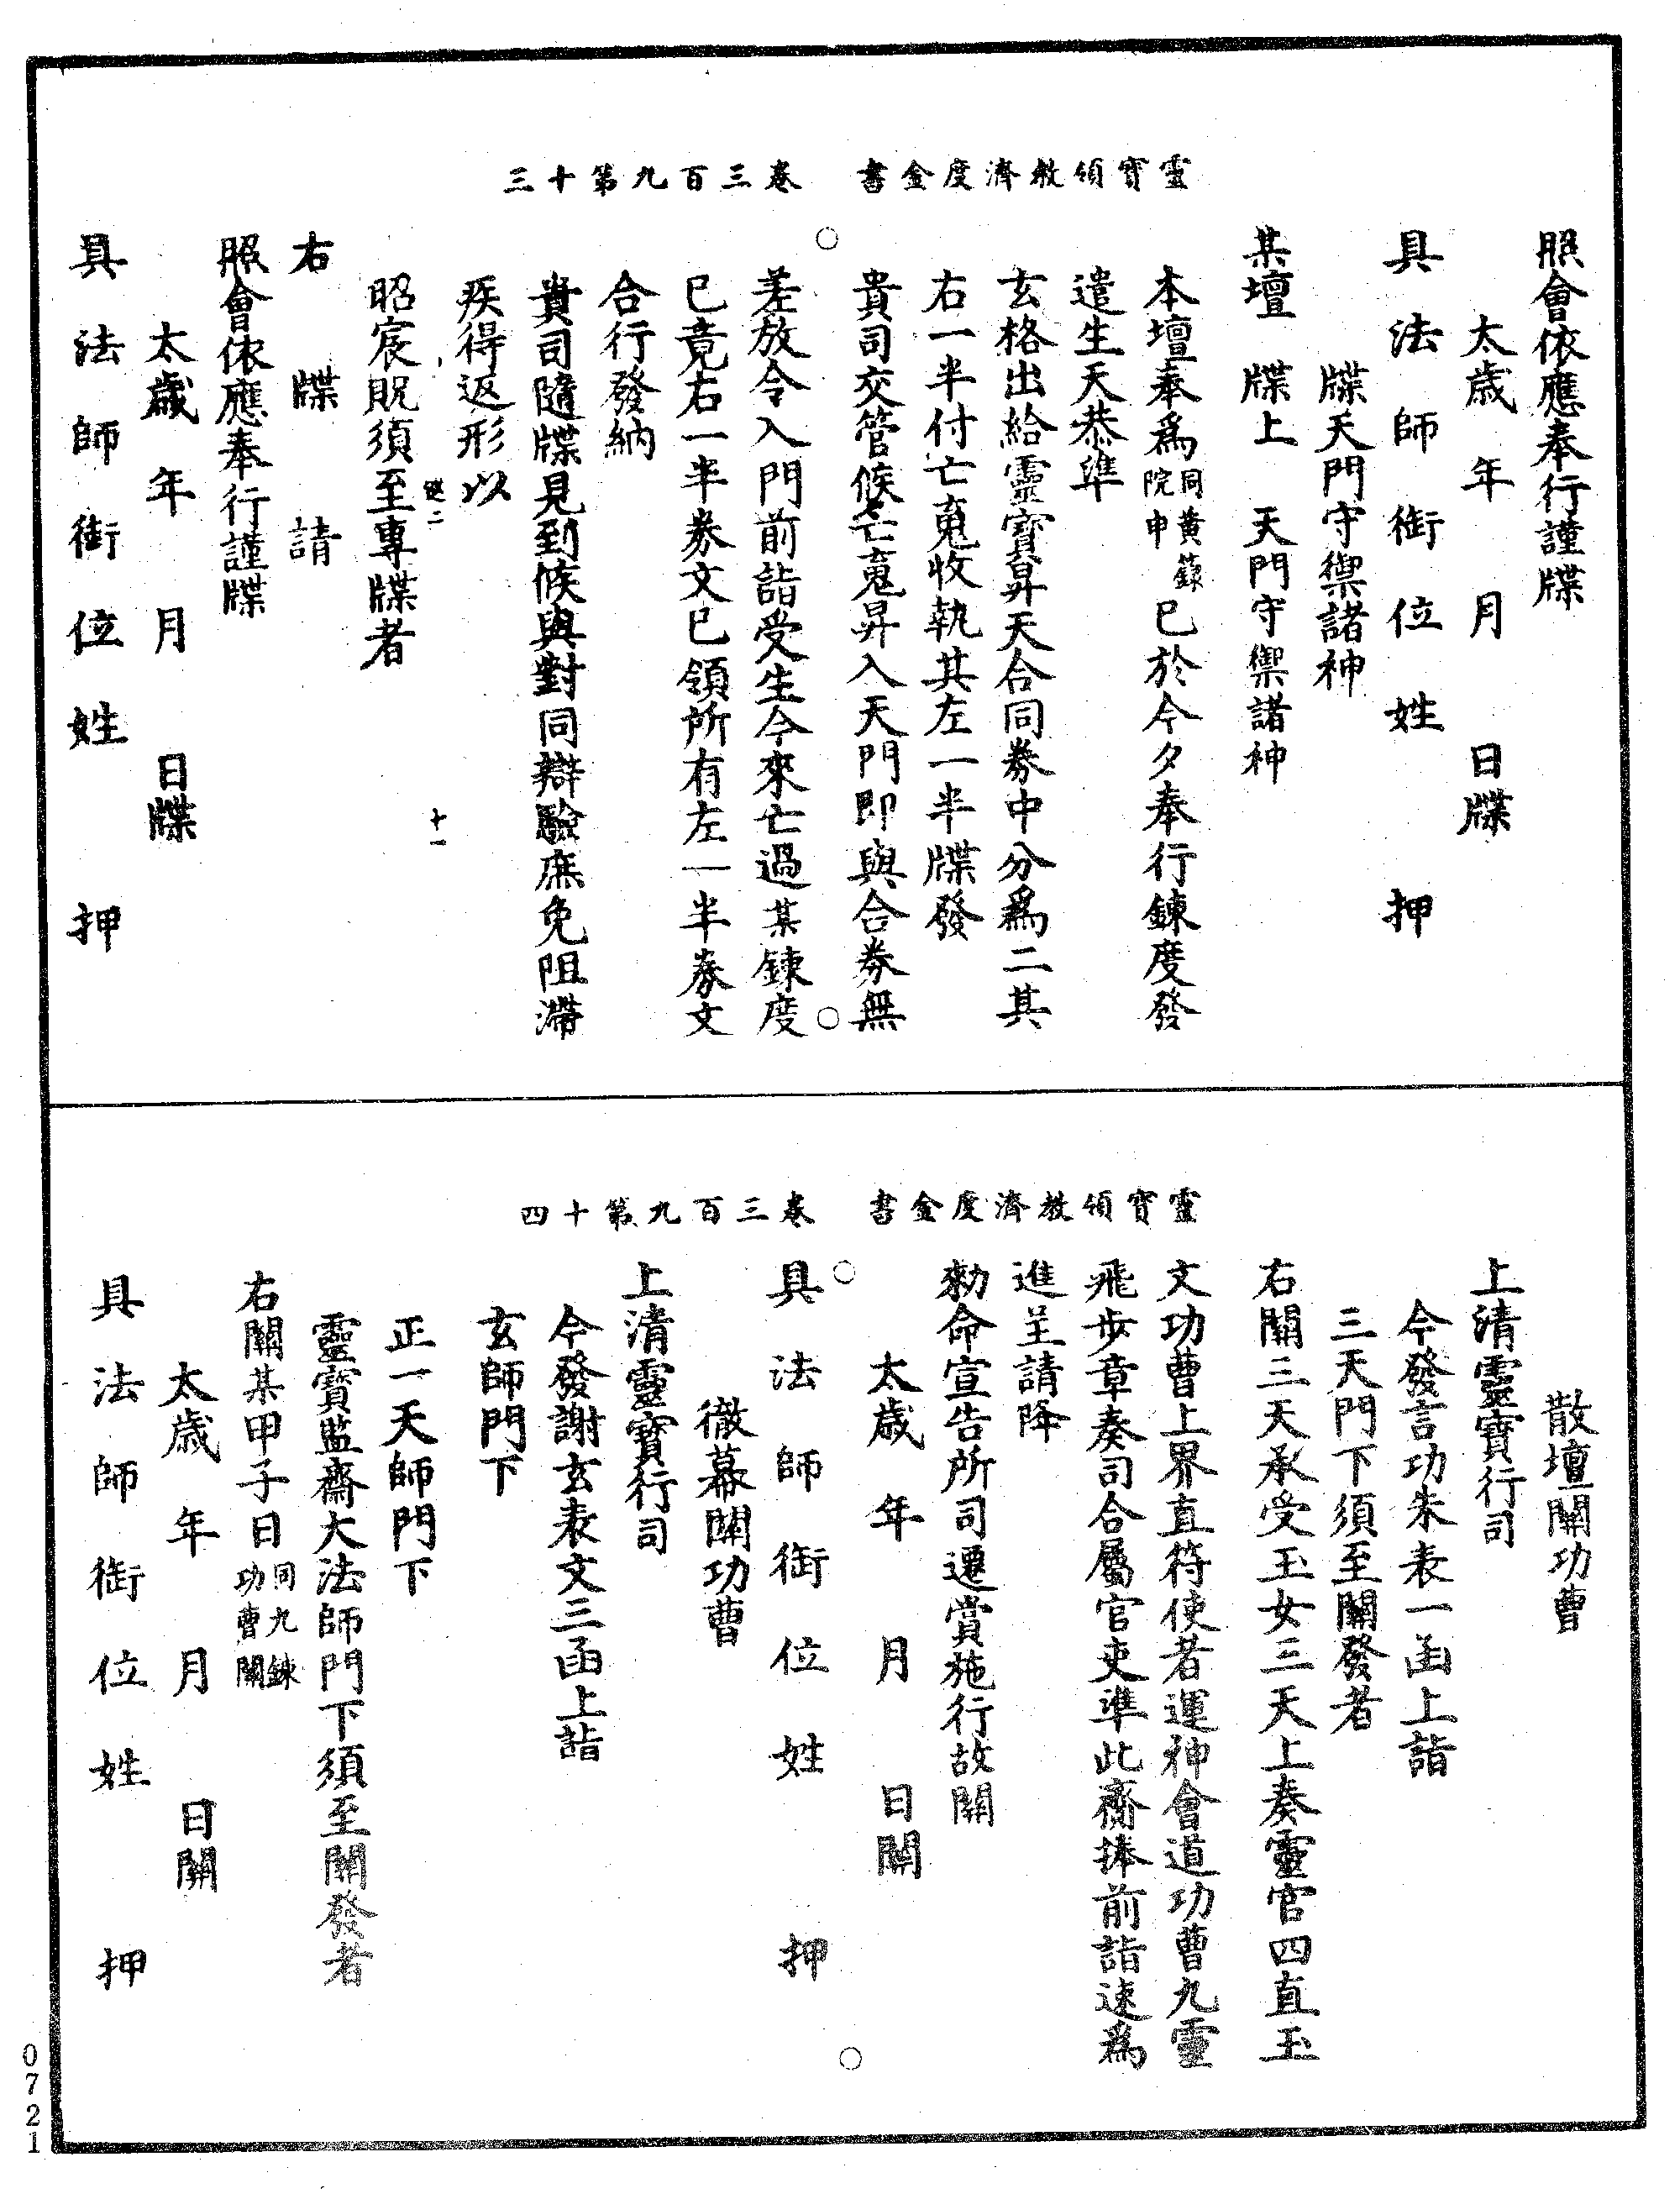 靈寶領教濟度金書　卷三百九第十三
照會依應奉行謹牒
太歲　年　月　日牒
具法師銜位姓　押
牒天門守禦諸神
某壇　牒上　天門守禦諸神
本壇奉爲同黃籙院申已於今夕奉行鍊度發
遣生天恭準
玄格出給靈寶昇天合同券中分爲二其
右一半付亡䰟收執其左一半牒發
貴司交管候亡䰟昇入天門即與合券無
差放令入門前詣受生今來亡過某鍊度
已竟右一半券文已領所有左一半券文
合行發納
貴司隨牒見到候與對同辯驗庶免阻滯
疾得返形以
二　十一
昭宸貺須至專牒者
右　牒　請
照會依應奉行謹牒
太歲　年　月　日牒
具法師銜位姓　押
靈寶領教濟度金書　卷三百九第十四
散壇關功曹
上清靈寶行司
今發言功朱表一函上詣
三天門下須至關發者
右關三天承受玉女三天上奏靈官四直玉
文功曹上界直符使者運神會道功曹九靈
飛步章奏司合屬官吏準此齋捧前詣速爲
進呈請降
勑命宣告所司遷賞施行故關
太歲　年　月　日關
具法師銜位姓　押
徹幕關功曹
上清靈寶行司
今發謝玄表文三函上詣
玄師門下
正一天師門下
靈寶監齋大法師門下須至關發者
右關某甲子日同九鍊功曹關
太歲　年　月　日關
具法師銜位姓　押
0721